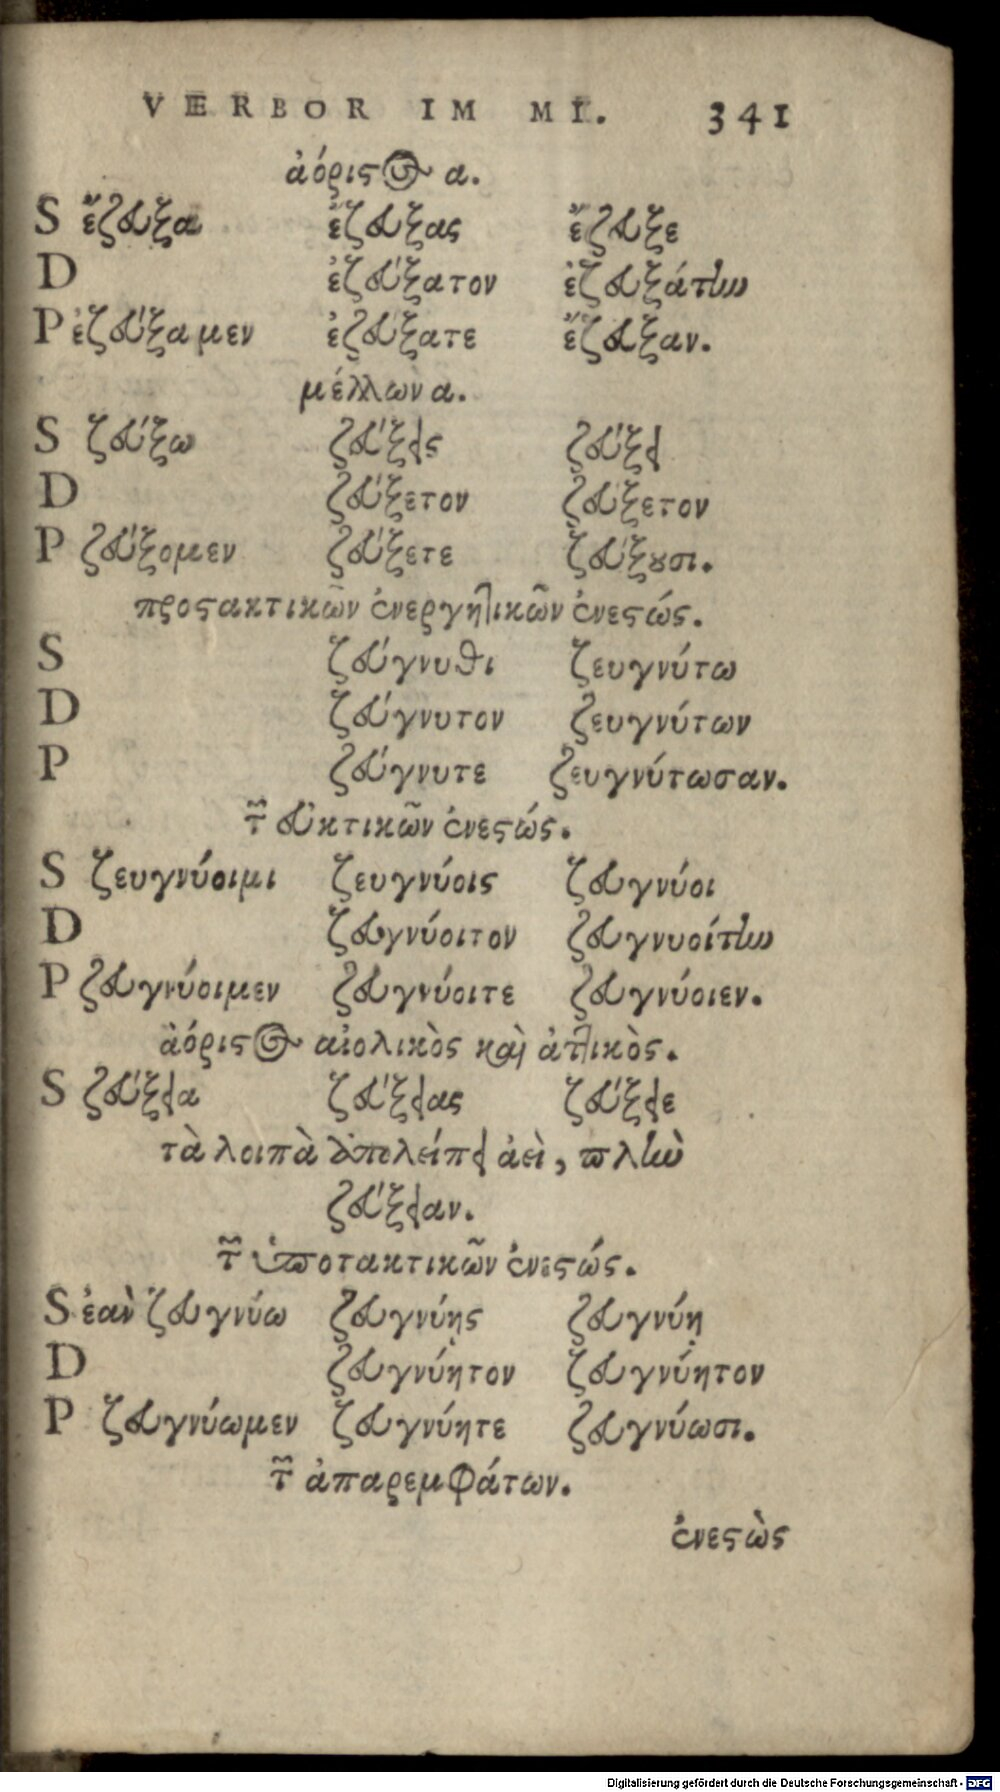 VERBOR IM MI. 341
ἀόριστος α.
S ἔζευξα ἔζευξας ἔζευξε
D ἐζεύξατον ἐζευξάτην
P ἐζεύξαμεν ἐζεύξατε ἔζευξαν.
μέλλων α.
S ζεύξω ζεύξεις ζεύξει
D ζεύξετον ζεύξετον
P ζεύξομεν ζεύξετε ζεύξουσι.
προστακτικῶν ἐνεργητικῶν ἐνεστώς.
S ζεύγνυθι ζευγνύτω
D ζεύγνυτον ζευγνύτων
P ζεύγνυτε ζευγνύτωσαν.
τῶν εὐκτικῶν ἐνεστώς.
S ζευγνύοιμι ζευγνύοις ζευγνύοι
D ζευγνύοιτον ζευγνυοίτην
P ζευγνύοιμεν ζευγνύοιτε ζευγνύοιεν.
ἀόριστος αἰολικὸς καὶ ἀττικὸς.
S ζεύξεια ζεύξειας ζεύξειε
τὰ λοιπὰ ἀπολείπει ἀεὶ, πλὴν
ζεύξειαν.
τῶν ὑποτακτικῶν ἐνεστώς.
S ἐαν ζευγνύω ζευγνύῃς ζευγνύῃ
D ζευγνύητον ζευγνύητον
P ζευγνύωμεν ζευγνύητε ζευγνύωσι.
τῶν ἀπαρεμφάτων.
ἐνεστὼς
Digitalisierung gefördert durch die Deutsche Forschungsgemeinschaft - DFG